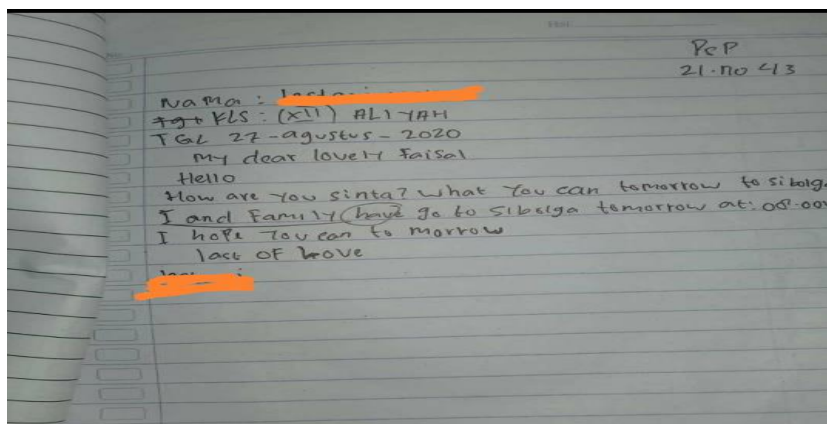 PcP
21.no 43
Nama :
KLS : (XII) ALIYAH
TGL 27-agustus-2020
My dear lovely Faisal
Hello
How are you sinta? what you can tomorrow to sibolg
I and Family have go to Sibolga tomorrow at: 08.00
I hope you can to morrow
last of love